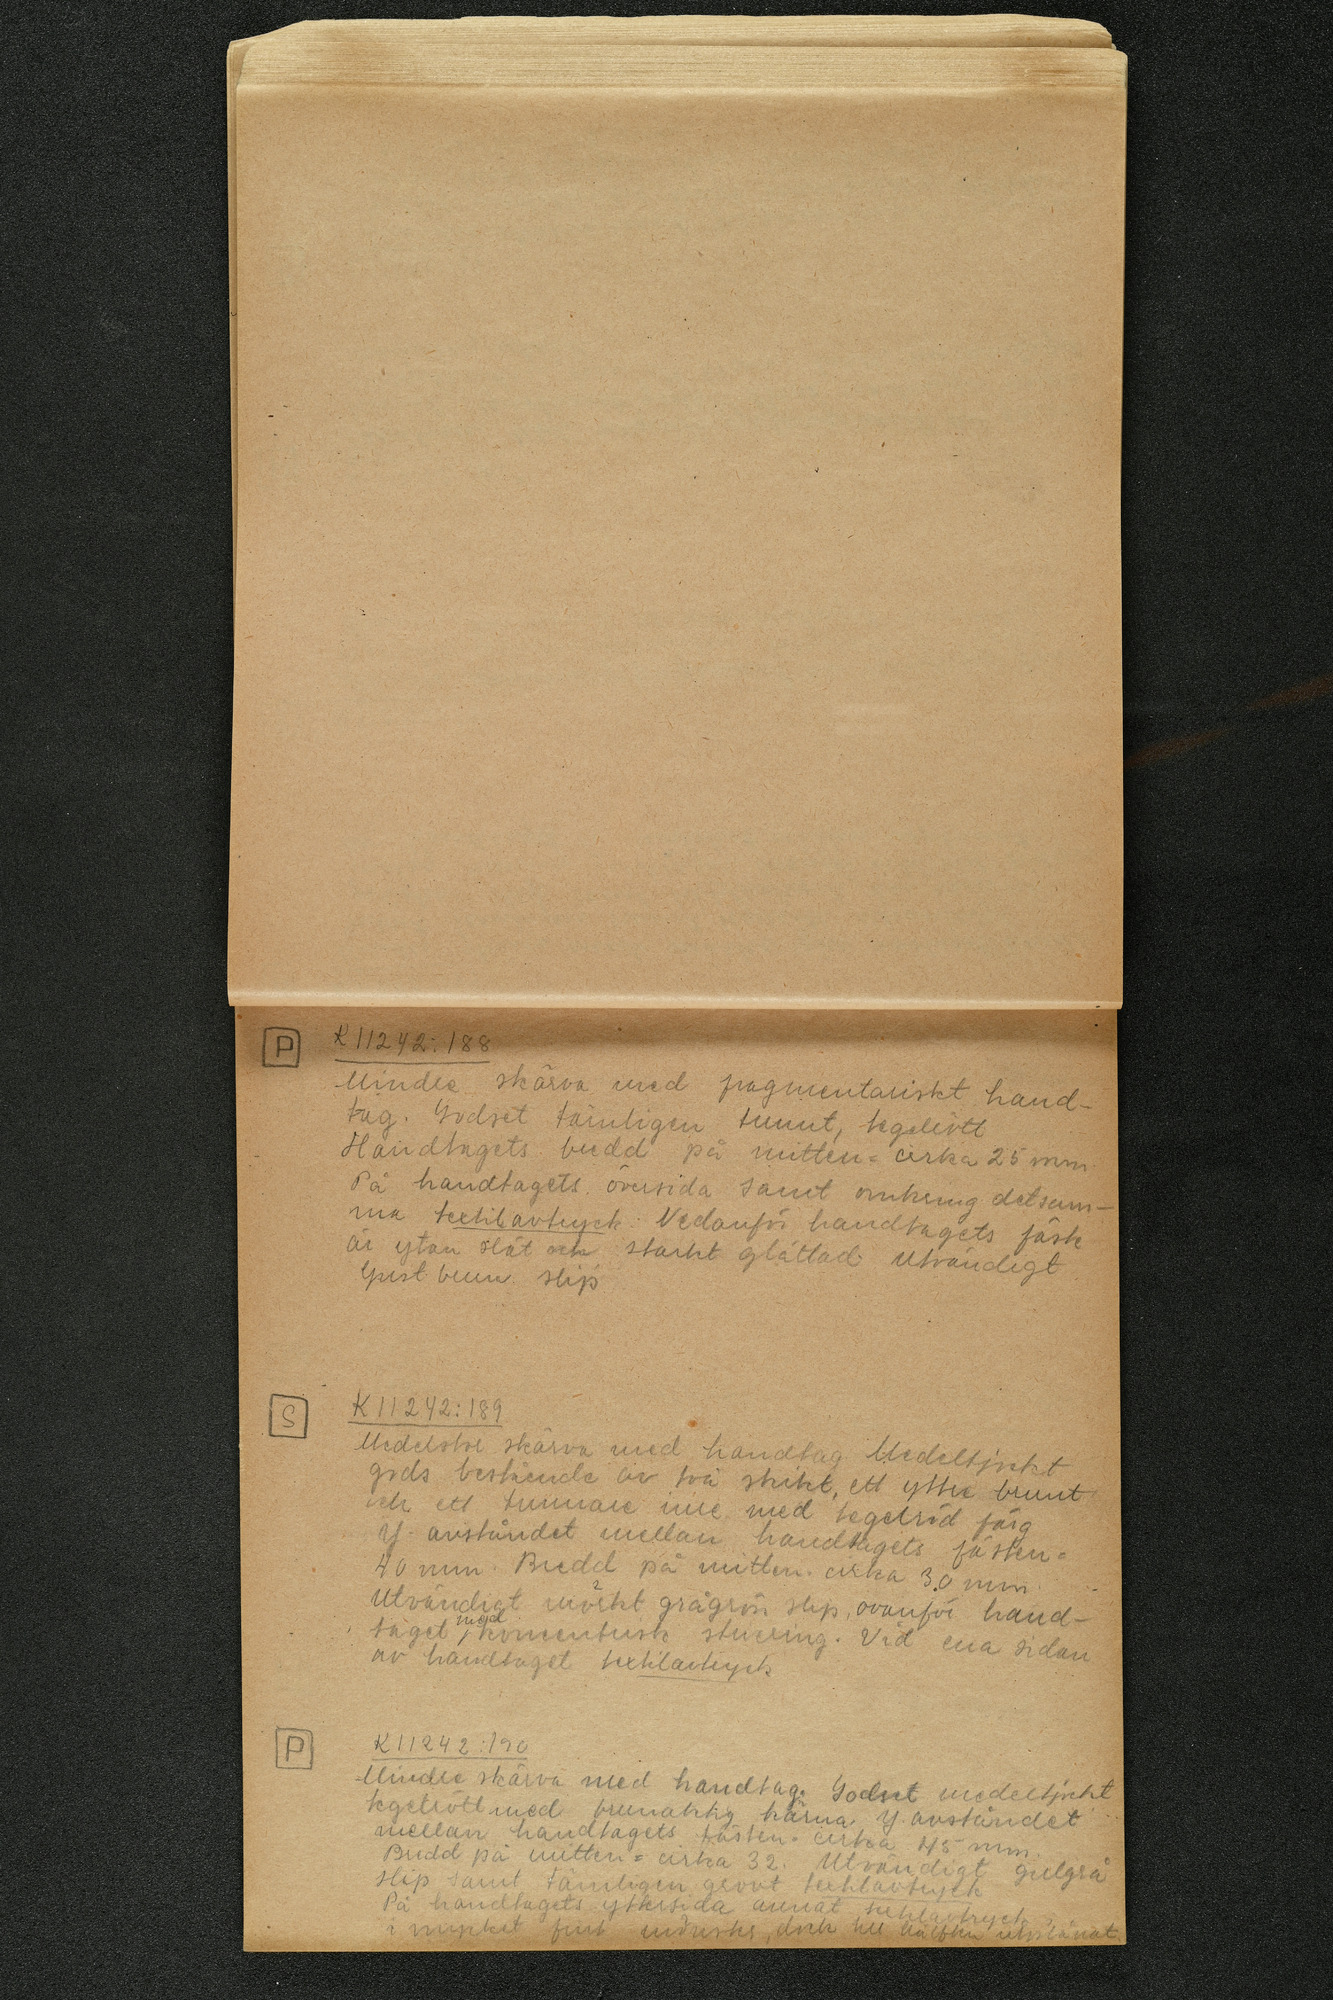 P K 11242:188
Mindre skärva med fragmentariskt hand-
tag. Godset tämligen tunnt, tegelrött
Handtagets bredd på mitten = cirka 25 mm.
På handtagets översida samt omkring detsam-
ma textilavtryck. Nedanför handtagets fäste
är ytan slät och starkt glättad. Utvändigt
ljust brun slip
S K 11242:189
Medelstor skärva med handtag. Medeltjockt
gods bestående av två skikt, ett yttre brunt
och ett tunnare inre med tegelröd färg
Y. avståndet mellan handtagets fästen =
40 mm. Bredd på mitten. cirka 30 mm.
Utvändigt mörkt grågrön slip, ovanför hand-
taget med koncentrisk striering. Vid ena sidan
av handtaget textilavtryck
P K 11242:190
Mindre skärva med handtag. Godset medeltjockt
tegelrött med brunaktig kärna. Y. avståndet
mellan handtagets fästen = cirka 45 mm.
Bredd på mitten = cirka 32. Utvändigt gulgrå
slip samt tämligen grovt textilavtryck
På handtagets yttersida annat textilavtryck
i mycket fint mönster, dock till hälften utplånat